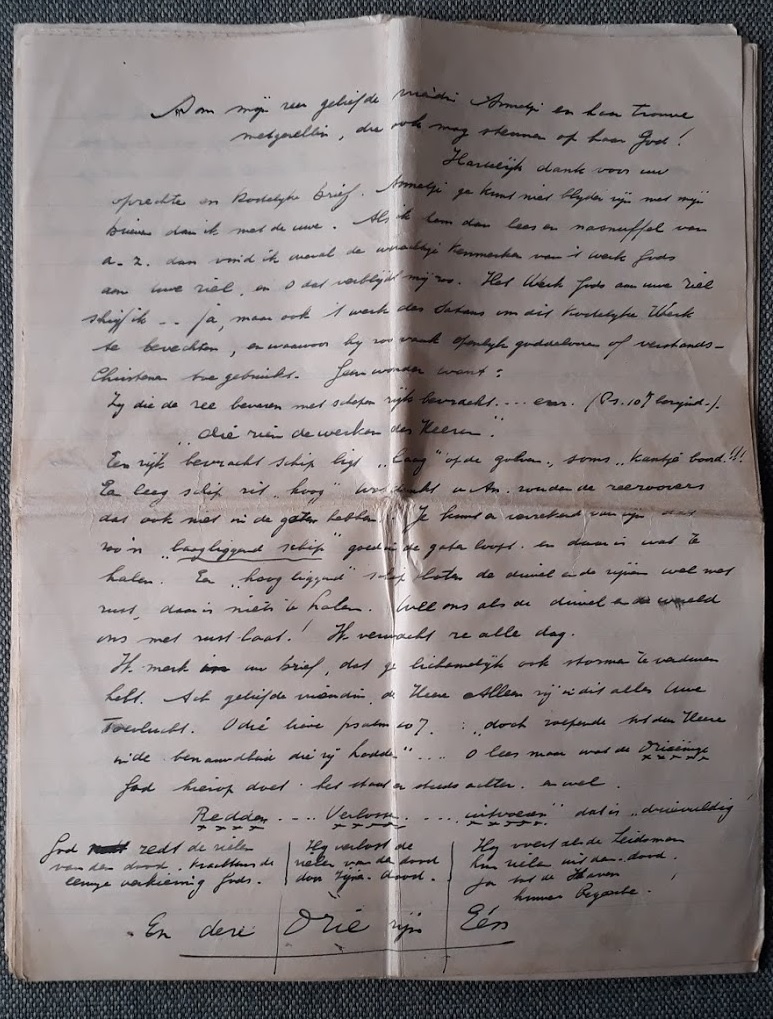 Aan mijn zeer geliefde vriendin Annetje en haar trouwe
metgezellin, die ook mag steunen op haar God!
Hartelijk dank voor uw
oprechte en kostelijke brief. Annetje ge kunt niet blijder zijn met mijn
brieven dan ik met de uwe. Als ik hem dan lees en nasnuffel van
a-z. dan vind ik overal de waarachtige kenmerken van 't werk Gods
aan uwe ziel, en O dat verblijdt mij zoo. Het Werk Gods aan uwe ziel
schrijf ik -- ja, maar ook 't werk des Satans om dit kostelijke Werk
te bevechten, en waarvoor hij zoo vaak openlijk goddeloozen of verstands-
Christenen toe gebruikt. Geen wonder want:
Zij die de zee bevaren met schepen rijk bevracht.... enz. (Ps. 107 berijmd-).
"die zien de werken des Heeren".
Een rijk bevracht schip ligt "laag" op de golven, soms "kantje boord"!!
Een leeg schip vaart "hoog" Wat denkt u An. zouden de zeeroovers
dat ook niet in de gaten hebben. Je kunt er verzekerd van zijn dat
zoo'n "laagliggend schip" goed in de gaten loopt. en daar is wat te
halen. Een "hoog liggend" schip laten de duivel en de zijnen wel met
rust, daar is niets te halen. Wee ons als de duivel en de wereld
ons met rust laat! Ik verwacht ze alle dag.
Ik merk in uw brief, dat ge lichamelijk ook stormen te verduren
hebt. Ach geliefde vriendin, de Heere Alleen zij in dit alles Uwe
Toevlucht. O die lieve psalm 107. : "doch roepende tot den Heere
in de benauwdheid die zij hadden".... O lees maar wat de Drieënige
God hierop doet. het staat er steeds achter. en wel.
Redden .... Verlossen .... uitvoeren" dat is "drievuldig"
God redt de zielen
van den dood. krachtens de
eeuwige verkiezing Gods.
Hij verlost de
zielen van de dood
door Zijn dood.
Hij voert als de Leidsman
hun zielen uit den dood.
Ja tot de Haven
hunner Begeerte.!
En deze Drie zijn Eén